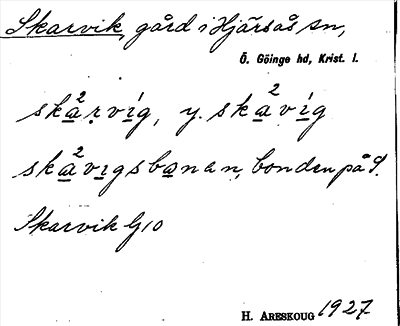 Skarvik, gård i Hjärsås sn,
Ö. Göinge hd, Krist. l.
skạ²rvíg, y. skạ²víg
skạ²vigsbạnan, bonden på S.
Skarvik G10
H. Areskoug 1927